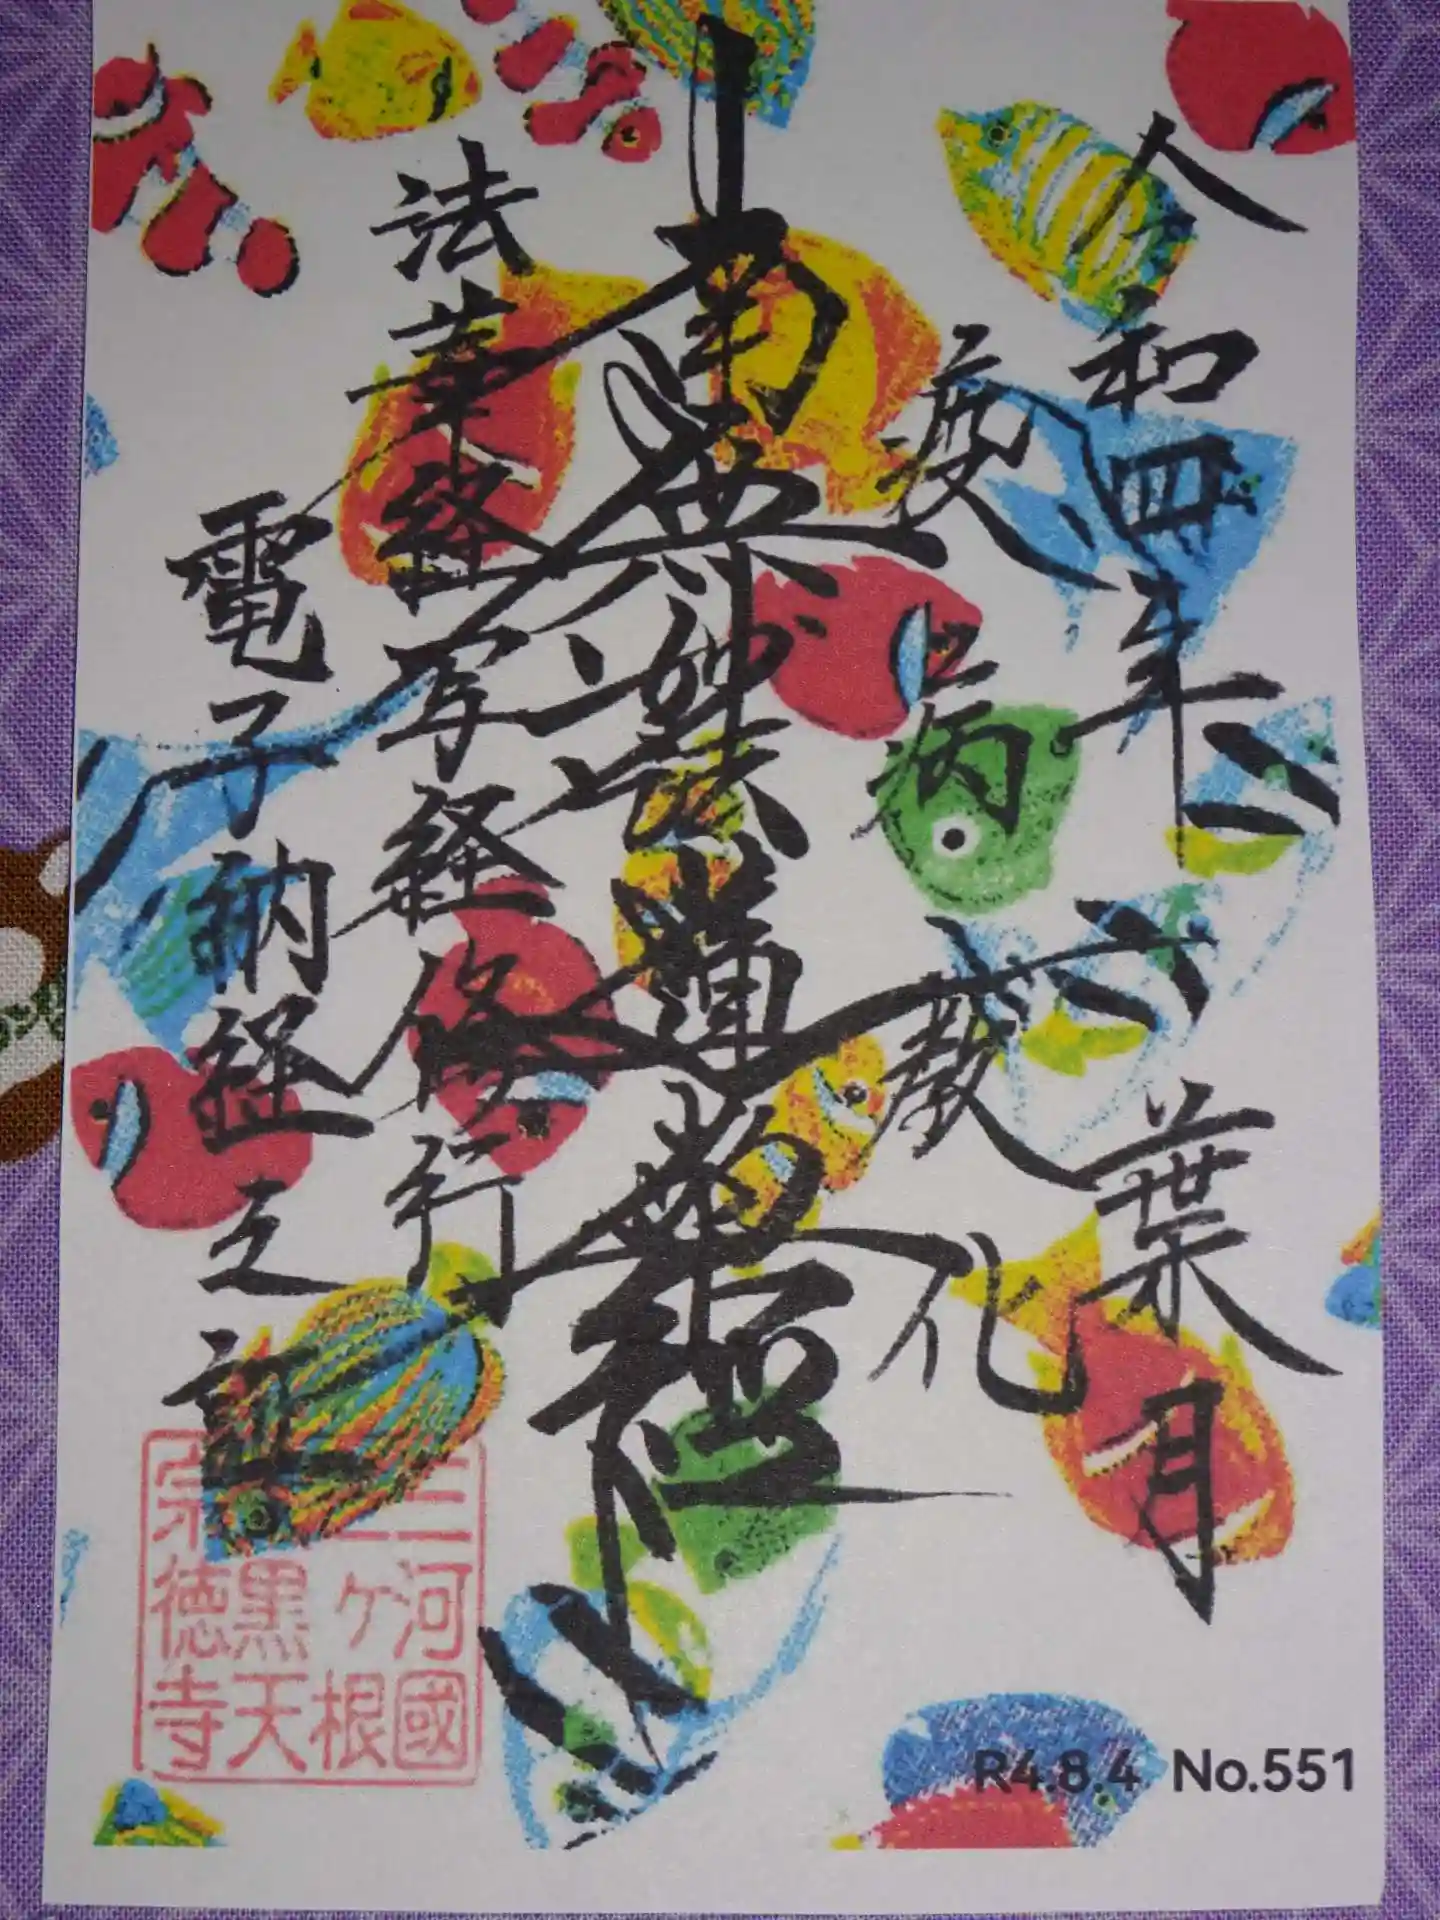 令和四年 葉月
疫病 教化
南無妙法蓮華経
法華経写経修行
電子納経之記
三河國
三ヶ根
黒天
宗徳寺
R4.8.4 No.551